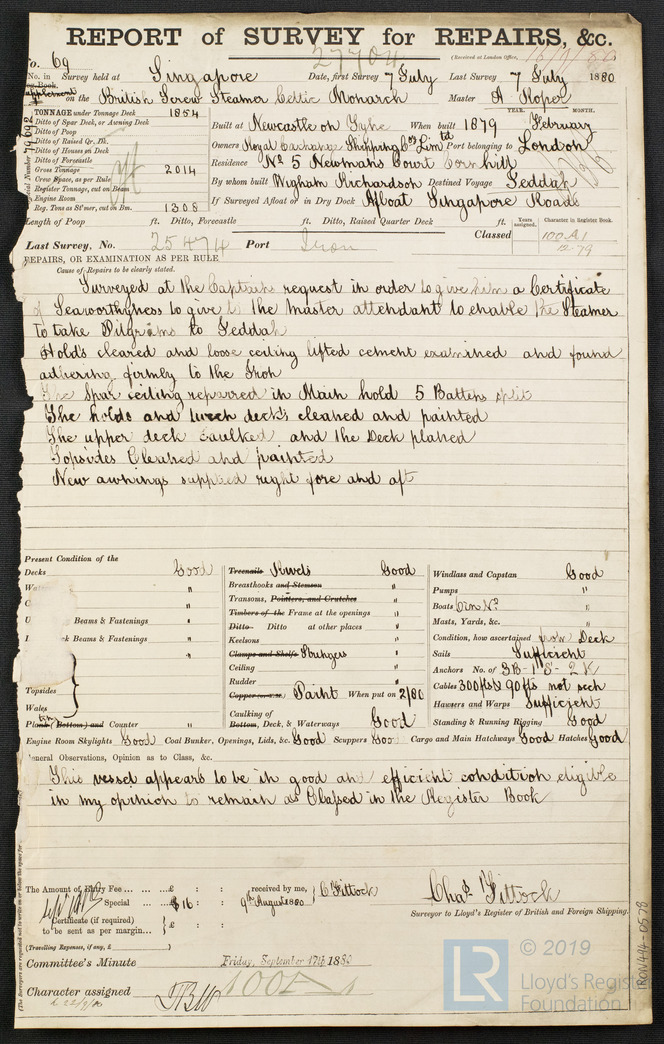 REPORT of SURVEY for REPAIRS, &c.
27704
(Received at London Office,
No. 69
No. in Survey held at Singapore Date, first Survey 7 July Last Survey 7 July 1880
Reg. Book.
Supplement on the British Screw Steamer Celtic Monarch Master A Roper
TONNAGE under Tonnage Deck 1854
Ditto of Spar Deck, or Awning Deck
Ditto of Poop
Ditto of Raised Qr. Dk.
Ditto of Houses on Deck
Ditto of Forecastle
Gross Tonnage 2014
Crew Space, as per Rule
Register Tonnage, cut on Beam
Engine Room
Reg. Tons as St'mer, cut on Bm. 1308
YEAR. MONTH.
Built at Newcastle on Tyne When built 1879 February
Owners Royal Exchange Shipping Co. Limtd Port belonging to London
Residence No 5 Newmans Court Cornhill
By whom built Wigham Richardson Destined Voyage Jeddah
If Surveyed Afloat or in Dry Dock Afloat Singapore Roads
Length of Poop ft. Ditto, Forecastle ft. Ditto, Raised Quarter Deck ft.
Years assigned. Character in Register Book.
Last Survey, No. 25474 Port Iron Classed 100A1
12-79
REPAIRS, OR EXAMINATION AS PER RULE
Cause of Repairs to be clearly stated.
Surveyed at the Captains request in order to give him a Certificate
of Seaworthyness to give to the Master attendant to enable the Steamer
to take Pilgrims to Jeddah
Hold's cleared and loose ceiling lifted cement examined and found
adhering firmly to the Iron
The Spar ceiling repaired in Main hold 5 Battens split
The holds and tween deck's cleaned and painted
The upper deck caulked and the Deck planed
Topsides Cleaned and painted
New awnings supplied right fore and aft
Present Condition of the
Decks Good
"
"
Beams & Fastenings "
Beams & Fastenings "
Topsides
Wales
Plank (Bottom) and Counter "
Treenails Rivets Good
Breasthooks and Stemson "
Transoms, Pointers, and Crutches "
Timbers of the Frame at the openings "
Ditto Ditto at other places "
Keelsons "
Clamps and Shelfs Stringers "
Ceiling "
Rudder "
Paint When put on 2/80
Caulking of
Bottom, Deck, & Waterways Good
Windlass and Capstan Good
Pumps "
Boats "
Masts, Yards, &c. "
Condition, how ascertained from Deck
Sails Sufficient
Anchors No. of 3B - 1S - 2K
Cables 300fths & 90fths not seen
Hawsers and Warps Sufficient
Standing & Running Rigging Good
Engine Room Skylights Good Coal Bunker, Openings, Lids, &c. Good Scuppers Good Cargo and Main Hatchways Good Hatches Good
General Observations, Opinion as to Class, &c.
This vessel appears to be in good and efficient condition eligible
in my opinion to remain as Classed in the Register Book
The Amount of Entry Fee ... ... ...£ : : received by me, C Pittock
Special ... $16 : : 9th August 1880
Certificate (if required)
to be sent as per margin... } £ : :
(Travelling Expenses, if any, £ )
Chas Pittock
Surveyor to Lloyd's Register of British and Foreign Shipping.
Committee's Minute Friday, September 17th 1880
Character assigned 100A1
LR
© 2019
Lloyd's Register
Foundation
IRON494-0578